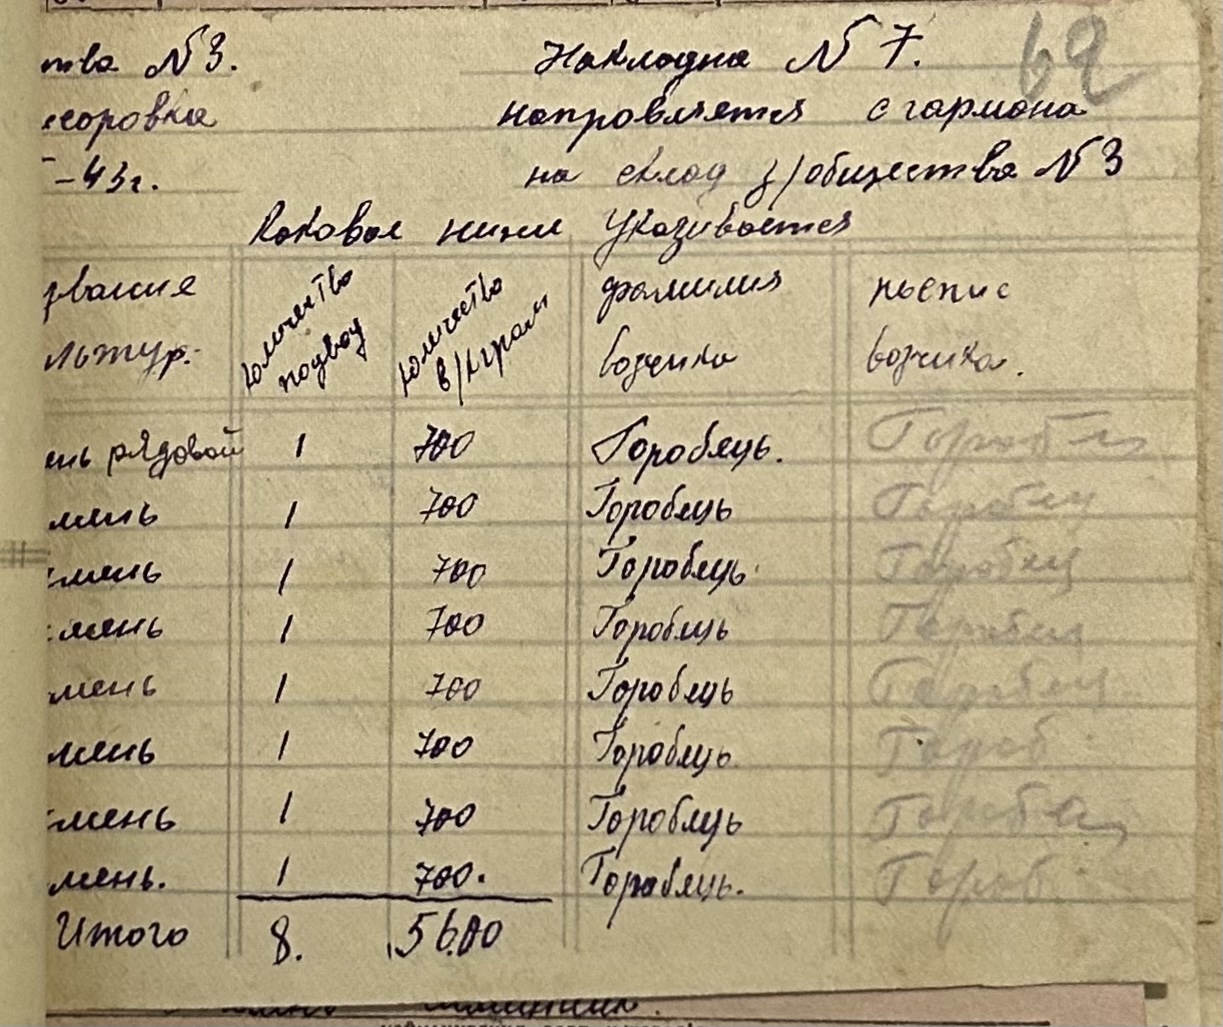 тва № 3. Накладна № 7. 62
соровка направляется с гармана
-43г. на склад з/общества № 3
Каковая ниже указивается
звание количество подвод количество в/кграм фамилия возчика подпис возчика.
льтур.
ень рядовой 1 700 Горобець. Горобец
мень 1 700 Горобець Горобец
мень 1 700 Горобець Горобец
мень 1 700 Горобець Горобец
мень 1 700 Горобець Горобец
мень 1 700 Горобець Гороб
мень 1 700 Горобець Горобец
мень. 1 700. Горобець. Гороб
Итого 8. 5600